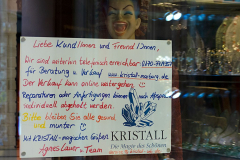 Liebe Kund/Innen und Freund/Innen,
Wir sind weiterhin telefonisch erreichbar
für Beratung u. Verkauf www.kristall-marburg.de
Der Verkauf kann online weitergehen
Reparaturen oder Anfertigungen können nach
individuell abgeholt werden.
Bitte bleiben Sie alle gesund
und munter
Mit KRISTALL-magischen Grüßen
Agnes Lauer u. Team
KRISTALL
Die Magie des Schönen